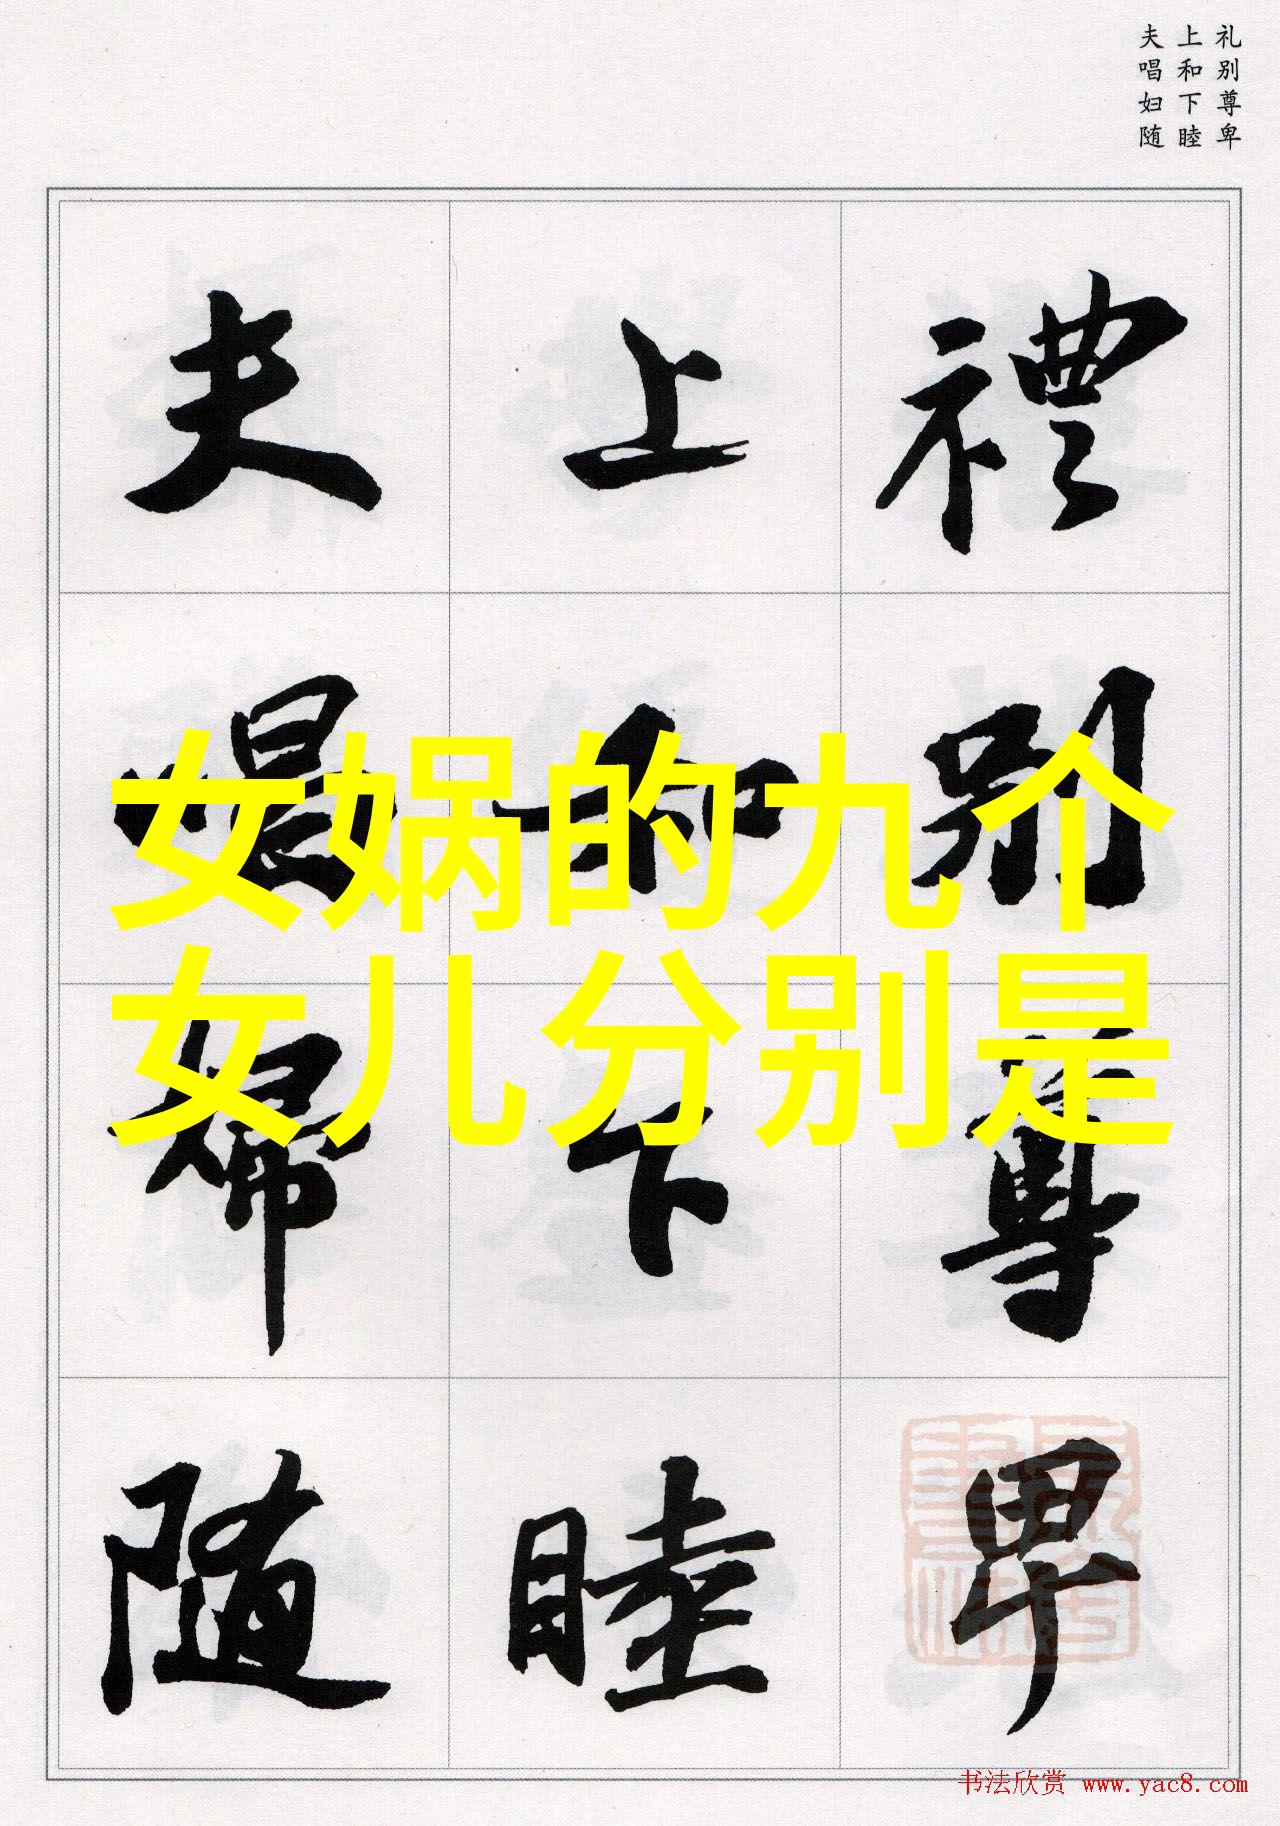 礼别尊卑
上和下睦
夫唱妇随
禮別尊卑
上和下睦
夫唱婦随
女娲的九个
女儿分别是
书法欣赏 www.yac8.com